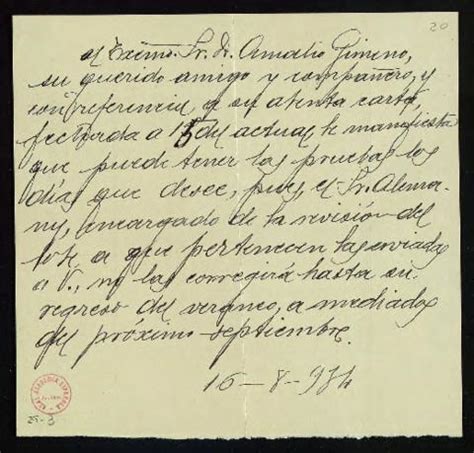 20
al Excmo. Sr. D. Amalio Gimeno,
su querido amigo y compañero, y
con referencia a su atenta carta
fechada a 15 del actual, le manifiesta
que puede tener las pruebas los
días que desee, pues, el Sr. Alema-
ny, encargado de la revisión del
lote a que pertenecen las enviadas
a V., no las corregirá hasta su
regreso del veraneo, a mediados
del próximo septiembre.
16-8-934
REAL ACADEMIA ESPAÑOLA
29-3